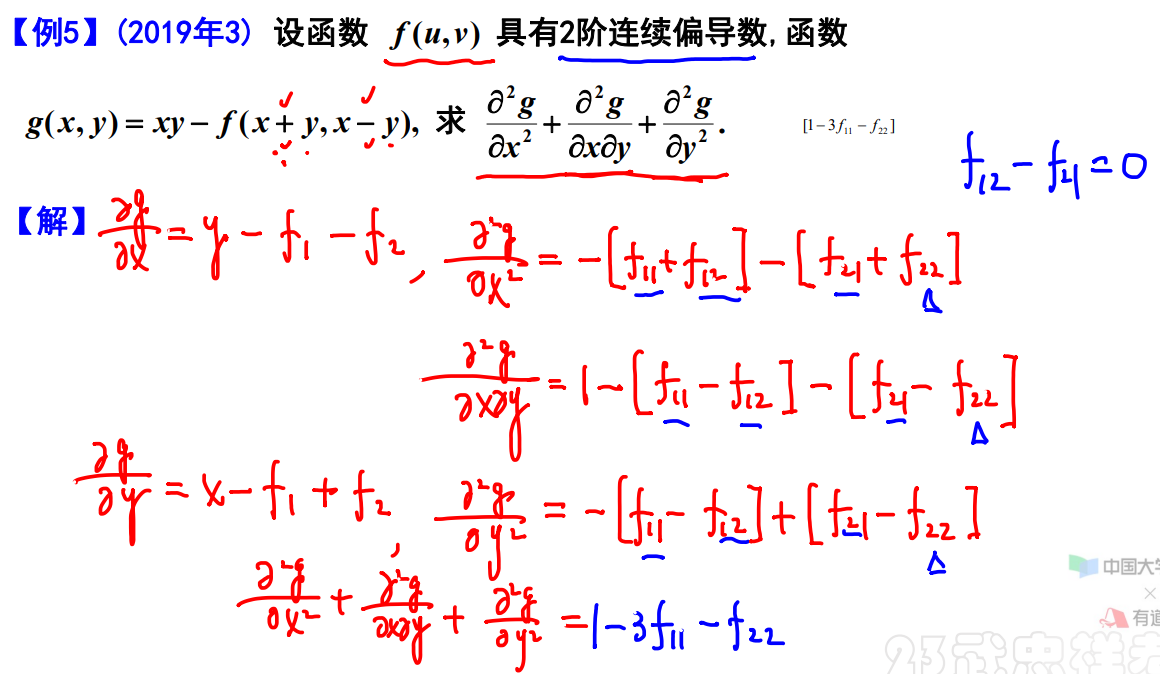 【例5】(2019年3) 设函数 f(u,v) 具有2阶连续偏导数,函数
g(x,y)=xy−f(x+y,x−y), 求 ∂²g/∂x² + ∂²g/∂x∂y + ∂²g/∂y². [1−3f₁₁−f₂₂]
f₁₂−f₂₁=0
【解】∂g/∂x = y−f₁−f₂, ∂²g/∂x² = −[f₁₁+f₁₂]−[f₂₁+f₂₂]
∂²g/∂x∂y = 1−[f₁₁−f₁₂]−[f₂₁−f₂₂]
∂g/∂y = x−f₁+f₂, ∂²g/∂y² = −[f₁₁−f₁₂]+[f₂₁−f₂₂]
∂²g/∂x² + ∂²g/∂x∂y + ∂²g/∂y² = 1−3f₁₁−f₂₂
中国大学
×
有道